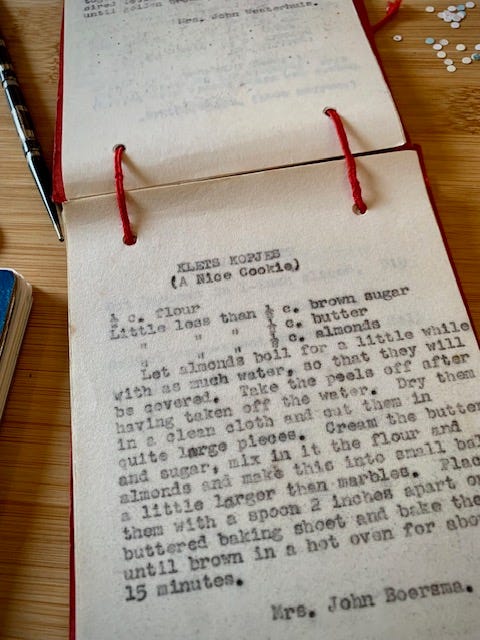 until golden
Mrs. John Westerhuis.
KLETS KOPJES
(A Nice Cookie)
c. flour
Little less than c. brown sugar
" " " c. butter
" " " c. almonds
Let almonds boil for a little while
with as much water, so that they will
be covered. Take the peels off after
having taken off the water. Dry them
in a clean cloth and cut them in
quite large pieces. Cream the butter
and sugar, mix in it the flour and
almonds and make this into small bal
a little larger than marbles. Plac
them with a spoon 2 inches apart on
buttered baking sheet and bake the
until brown in a hot oven for abo
15 minutes.
Mrs. John Boersma.